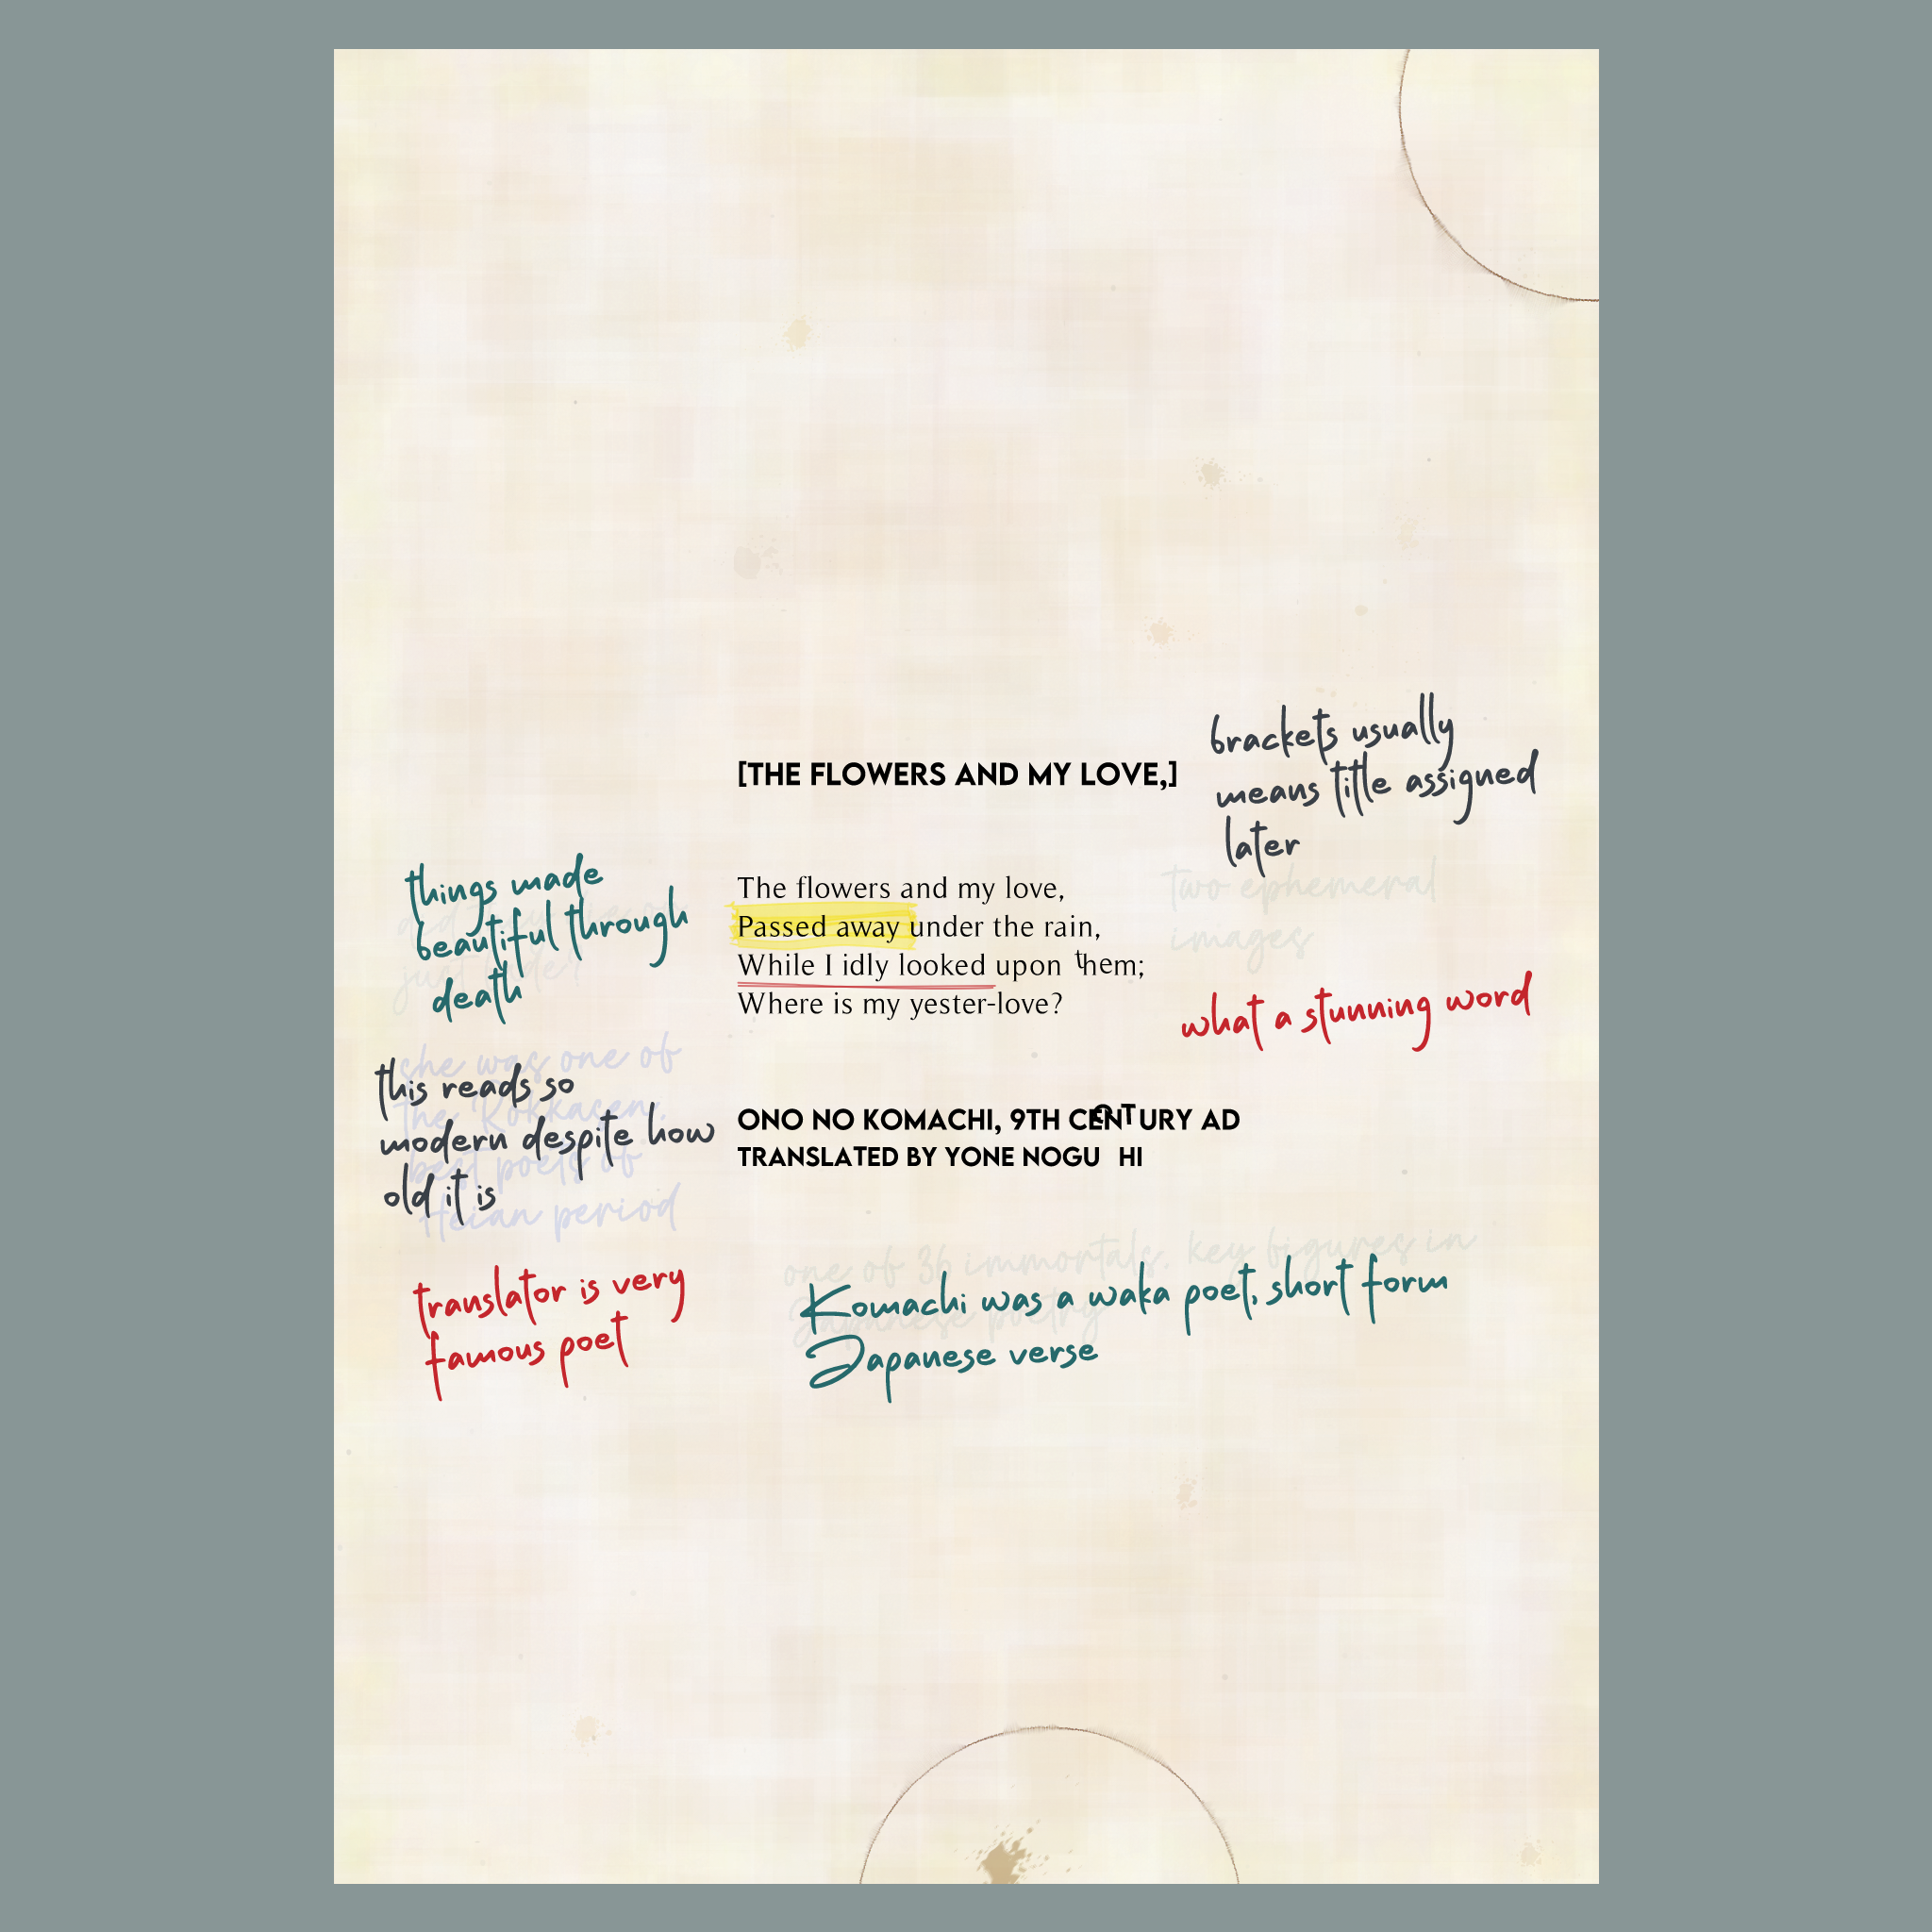 [THE FLOWERS AND MY LOVE,]
brackets usually
means title assigned
later
The flowers and my love,
Passed away under the rain,
While I idly looked upon them;
Where is my yester-love?
two ephemeral
images
what a stunning word
things made
beautiful through
death
just
she was one of
the Rokkasen,
best poets of
Heian period
this reads so
modern despite how
old it is
ONO NO KOMACHI, 9TH CENTURY AD
TRANSLATED BY YONE NOGU HI
translator is very
famous poet
one of 36 immortals, key figures in
Japanese poetry
Komachi was a waka poet, short form
Japanese verse